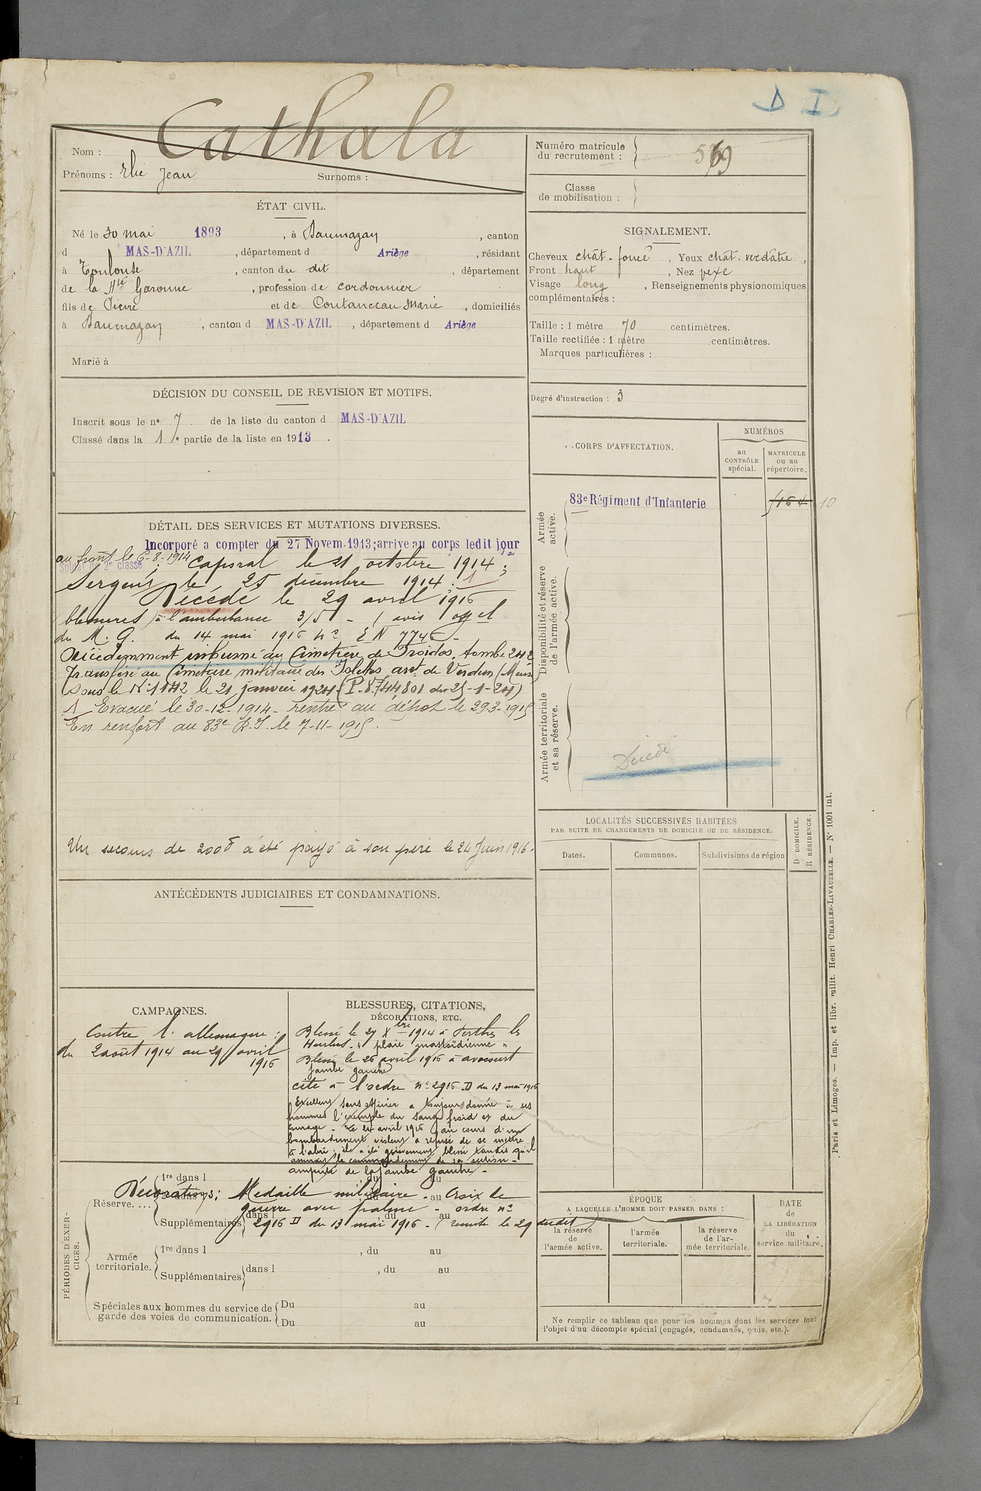 D I
Nom : Cathala
Prénoms : Elie Jean Surnoms :
Numéro matricule
du recrutement : 569
Classe
de mobilisation :
ÉTAT CIVIL.
Né le 30 mai 1893, à Daumazan, canton
d MAS-D'AZIL, département d Ariège, résidant
à Toulouse, canton du dit, département
de la Hte Garonne, profession de cordonnier
fils de Pierre et de Coutanceau Marie, domiciliés
à Daumazan, canton d MAS-D'AZIL, département d Ariège
Marié à
SIGNALEMENT.
Cheveux chât. foncé, Yeux chât. verdâtre,
Front haut, Nez vexe
Visage long, Renseignements physionomiques
complémentaires :
Taille : 1 mètre 70 centimètres.
Taille rectifiée : 1 mètre centimètres.
Marques particulières :
Degré d'instruction : 3
DÉCISION DU CONSEIL DE REVISION ET MOTIFS.
Inscrit sous le no 7 de la liste du canton d MAS-D'AZIL
Classé dans la 1re partie de la liste en 1913.
CORPS D'AFFECTATION.
NUMÉROS
au CONTRÔLE spécial.
MATRICULE ou au répertoire.
Armée active.
83e Régiment d'Infanterie
10
Disponibilité et réserve de l'armée active.
Armée territoriale et sa réserve.
Décédé
DÉTAIL DES SERVICES ET MUTATIONS DIVERSES.
Incorporé a compter du 27 Novem. 1913; arrive au corps ledit jour
Soldat de 2e classe
au front le 6-8-1914; Caporal le 21 octobre 1914;
Sergent le 25 décembre 1914. 1
Décédé le 29 avril 1916
(blessures) à l'ambulance 3/5 - (avis offel
du M. G. du 14 mai 1916 No E N 7746 -
Précédemment inhumé au Cimetière de Froidos, tombe 242
Transféré au Cimetière militaire des Islettes arrt de Verdun (Meuse)
sous le No 1172 le 21 janvier 1921
1 Evacué le 30-12-1914 - rentré au dépôt le 29-3-1915
En renfort au 83e R.I. le 7-11-1915.
Un secours de 200f a été payé à son père le 24 Juin 1916.
LOCALITÉS SUCCESSIVES HABITÉES
PAR SUITE DE CHANGEMENTS DE DOMICILE OU DE RÉSIDENCE.
Dates.
Communes.
Subdivisions de région
D DOMICILE.
R RÉSIDENCE.
ANTÉCÉDENTS JUDICIAIRES ET CONDAMNATIONS.
CAMPAGNES.
Contre l'allemagne :
du 2 août 1914 au 29 avril
1916
BLESSURES, CITATIONS,
DÉCORATIONS, ETC.
Blessé le 27 Xbre 1914 à Perthes les
Hurlus
Blessé le 26 avril 1916 à avocourt
jambe gauche
cité à l'ordre no 2916 D du 13 mai 1916
Excellent sous officier a toujours donné à ses
hommes l'exemple du sang froid et du
courage - Le 26 avril 1916 au cours d'un
bombardement violent a refusé de se mettre
à l'abri ; a été grièvement blessé tandis qu'il
assurait le commandement de sa section -
amputé de la jambe gauche -
Décorations: Médaille militaire - Croix de
guerre avec palme - ordre no
2916 D du 13 mai 1916 - (remise le 29 dudit
PÉRIODES D'EXERCICES.
Réserve....
1re dans l du au
Supplémentaires dans l du au
Armée territoriale.
1re dans l , du au
Supplémentaires dans l , du au
Spéciales aux hommes du service de
garde des voies de communication.
Du au
Du au
ÉPOQUE
A LAQUELLE L'HOMME DOIT PASSER DANS :
la réserve de l'armée active.
l'armée territoriale.
la réserve de l'armée territoriale.
DATE de LA LIBÉRATION du service militaire.
Ne remplir ce tableau que pour les hommes dont les services font
l'objet d'un décompte spécial (engagés, condamnés, omis, etc.).
Paris et Limoges. — Imp. et libr. milit. Henri CHARLES-LAVAUZELLE. — No 1001 int.